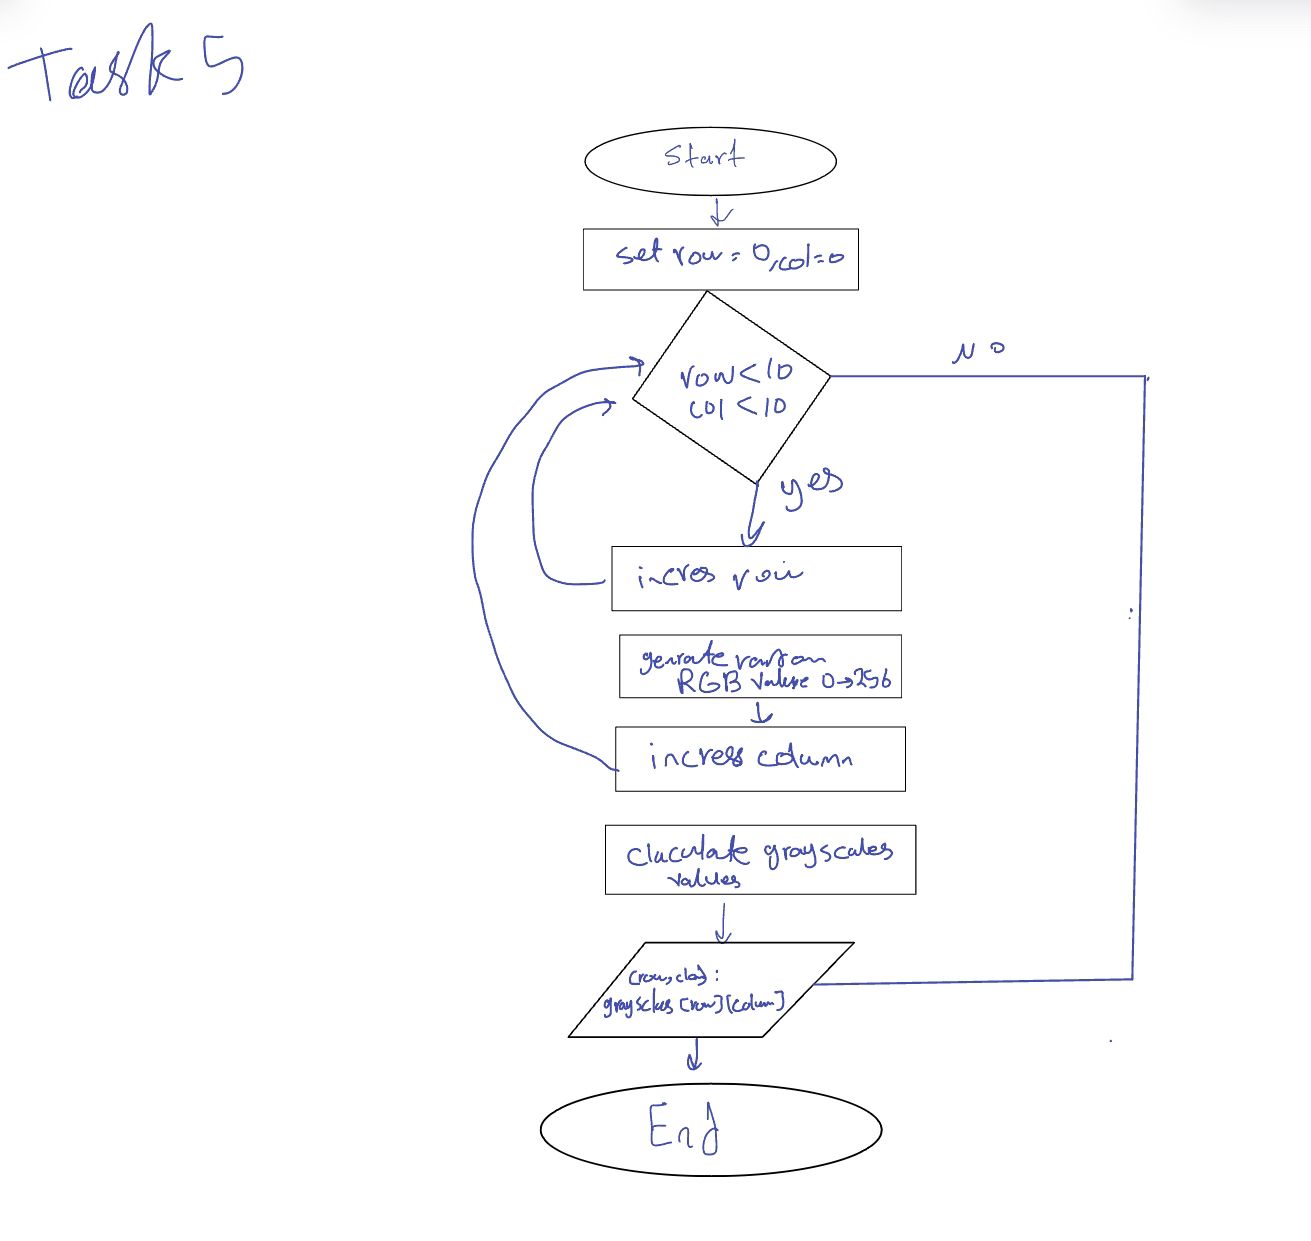 Task 5
Start
set row = 0, col = 0
row < 10
col < 10
NO
yes
incres row
genrate random
RGB value 0→256
incress column
claculate grayscales
values
(row, clo) :
graysclaes [row] [column]
End